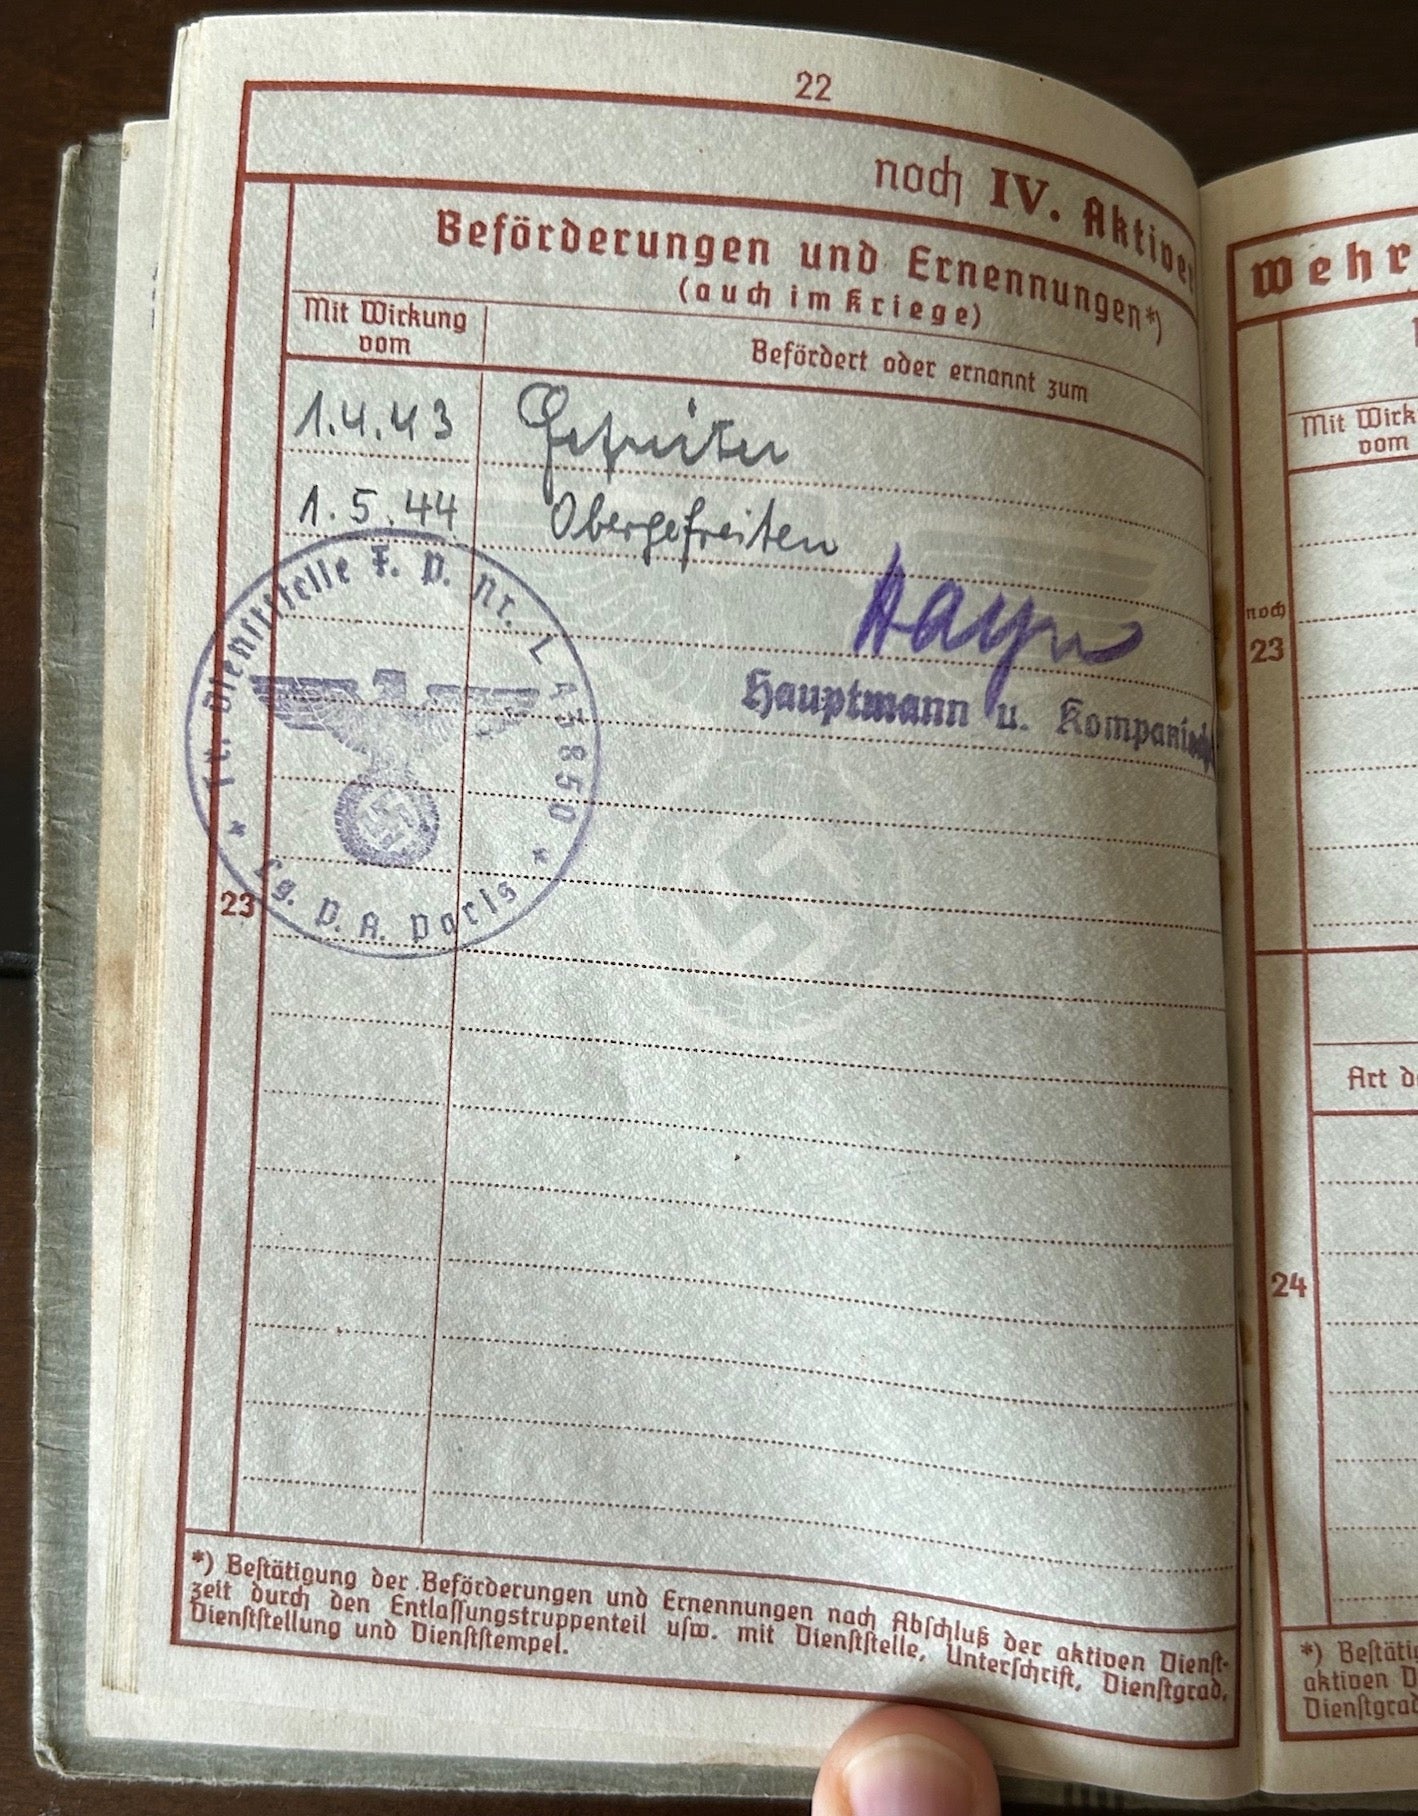 22
noch IV. Aktiver
Beförderungen und Ernennungen*)
(auch im Kriege)
Mit Wirkung
vom
Befördert oder ernannt zum
1.4.43 Gefreiten
1.5.44 Obergefreiten
Hauptmann u. Kompaniech
Dienststelle F. P. Nr. L 43850
* Lg. P. A. Paris *
23
*) Bestätigung der Beförderungen und Ernennungen nach Abschluß der aktiven Dienst-
zeit durch den Entlassungstruppenteil usw. mit Dienststelle, Unterschrift, Dienstgrad,
Dienststellung und Dienststempel.
Wehr
Mit Wirk
vom
noch
23
Art d
24
*) Bestätig
aktiven D
Dienstgrad